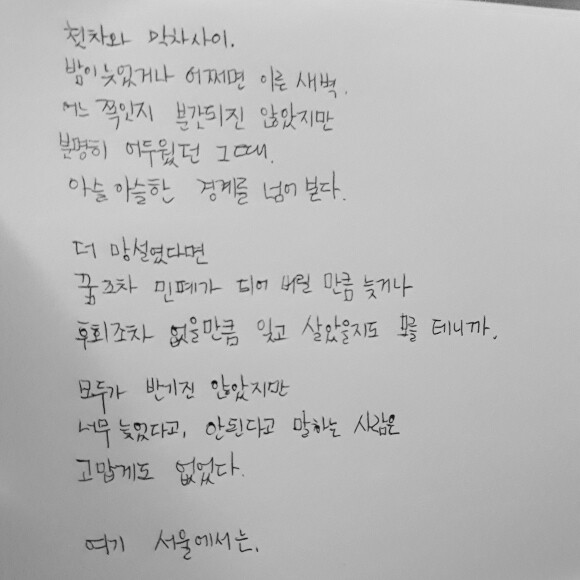 첫차와 막차사이.
밤이 늦었거나 어쩌면 이른 새벽.
어느 쪽인지 분간되진 않았지만
분명히 어두웠던 그때.
아슬아슬한 경계를 넘어 본다.
더 망설였다면
꿈조차 민폐가 되어 버릴 만큼 늦거나
후회조차 없을만큼 잊고 살았을지도 모를 테니까.
모두가 반기진 않았지만
너무 늦었다고, 안된다고 말하는 사람은
고맙게도 없었다.
여기 서울에서는.